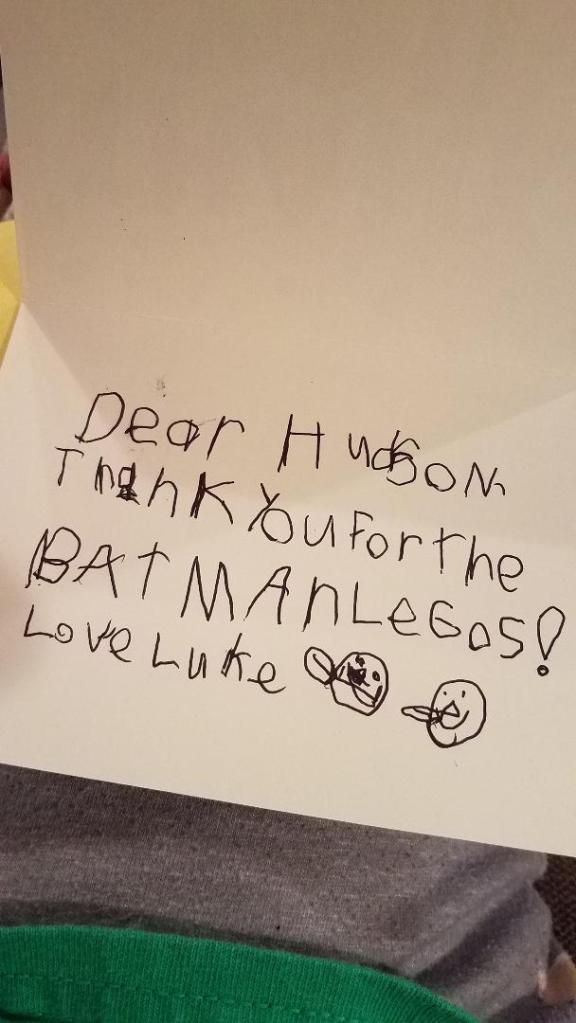 Dear Hudson
Thank You For The
BAT MAn LeGos!
Love Luke